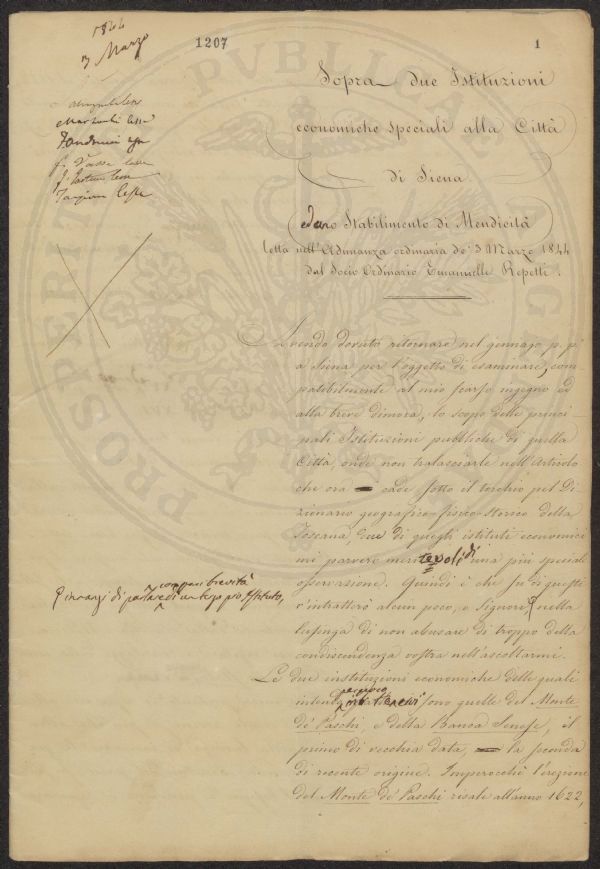 1844
3 Marzo
1207
1
Sopra due Istituzioni
economiche speciali alla Città
di Siena
ed uno Stabilimento di Mendicità
letta nell'Adunanza ordinaria de' 3 Marzo 1844
dal Socio Ordinario Emanuelle Repetti.
Avendo dovuto ritornare nel gennajo p. p.
a Siena per l'oggetto di esaminare, com
patibilmente al mio scarso ingegno ed
alla breve dimora, lo scopo delle princi-
pali Istituzioni pubbliche di quella
Città, onde non tralasciarle nell'Articolo
che ora cade sotto il torchio pel Di
zionario geografico-fisico-storico della
Toscana, due di quegli istituti economici
mi parvero meritevoli di una più speciale
osservazione. Quindi è che su di questi
v'intratterrò alcun poco, o Signori, nella
innanzi di parlare con pari brevità di un terzo pio Istituto,
lusinga di non abusare di troppo della
condiscendenza vostra nell'ascoltarmi.
Le due instituzioni economiche delle quali
intendo intrattenervi sono quelle del Monte
de' Paschi, e della Banca Senese, il
primo di vecchia data, la seconda
di recente origine. Imperocchè l'erezione
del Monte de' Paschi risale all'anno 1622,
PROSPERITATI PUBLICAE AUGENDAE